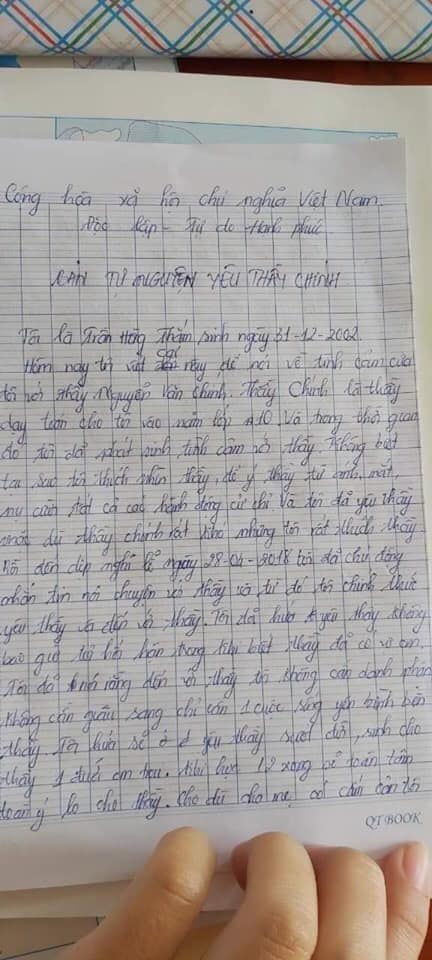 Cộng hòa xã hội chủ nghĩa Việt Nam.
Độc lập - Tự do Hạnh phúc.
BẢN TỰ NGUYỆN YÊU THẦY CHÍNH
Tôi là Trần Hồng Thắm, sinh ngày 31-12-2002.
Hôm nay tôi viết này để nói về tình cảm của
tôi với thầy Nguyễn Văn Chính. Thầy Chính là thầy
dạy toán cho tôi vào năm lớp 10. Và trong thời gian
đó tôi đã phát sinh tình cảm với thầy. Không biết
tại sao tôi thích nhìn thầy, để ý thầy từ ánh mắt,
nụ cười tất cả các hành động cử chỉ và tôi đã yêu thầy
mặc dù thầy chính rất khó nhưng tôi rất thích thầy.
Và đến dịp nghỉ lễ ngày 28-04-2018 tôi đã chủ động
nhắn tin nói chuyện với thầy và từ đó tôi chính thức
yêu thầy và đến với thầy. Tôi đã hứa yêu thầy không
bao giờ tôi hối hận trong khi biết thầy đã có vợ con.
Tôi đã nói rằng đến với thầy tôi không cần danh phận
không cần giàu sang chỉ cần 1 cuộc sống yên bình bên
thầy. Tôi hứa sẽ yêu thầy suốt đời, sinh cho
thầy 1 đứa em bé. khi học 12 xong sẽ toàn tâm
toàn ý lo cho thầy. Cho dù cha mẹ có cấm cản tôi
QT BOOK